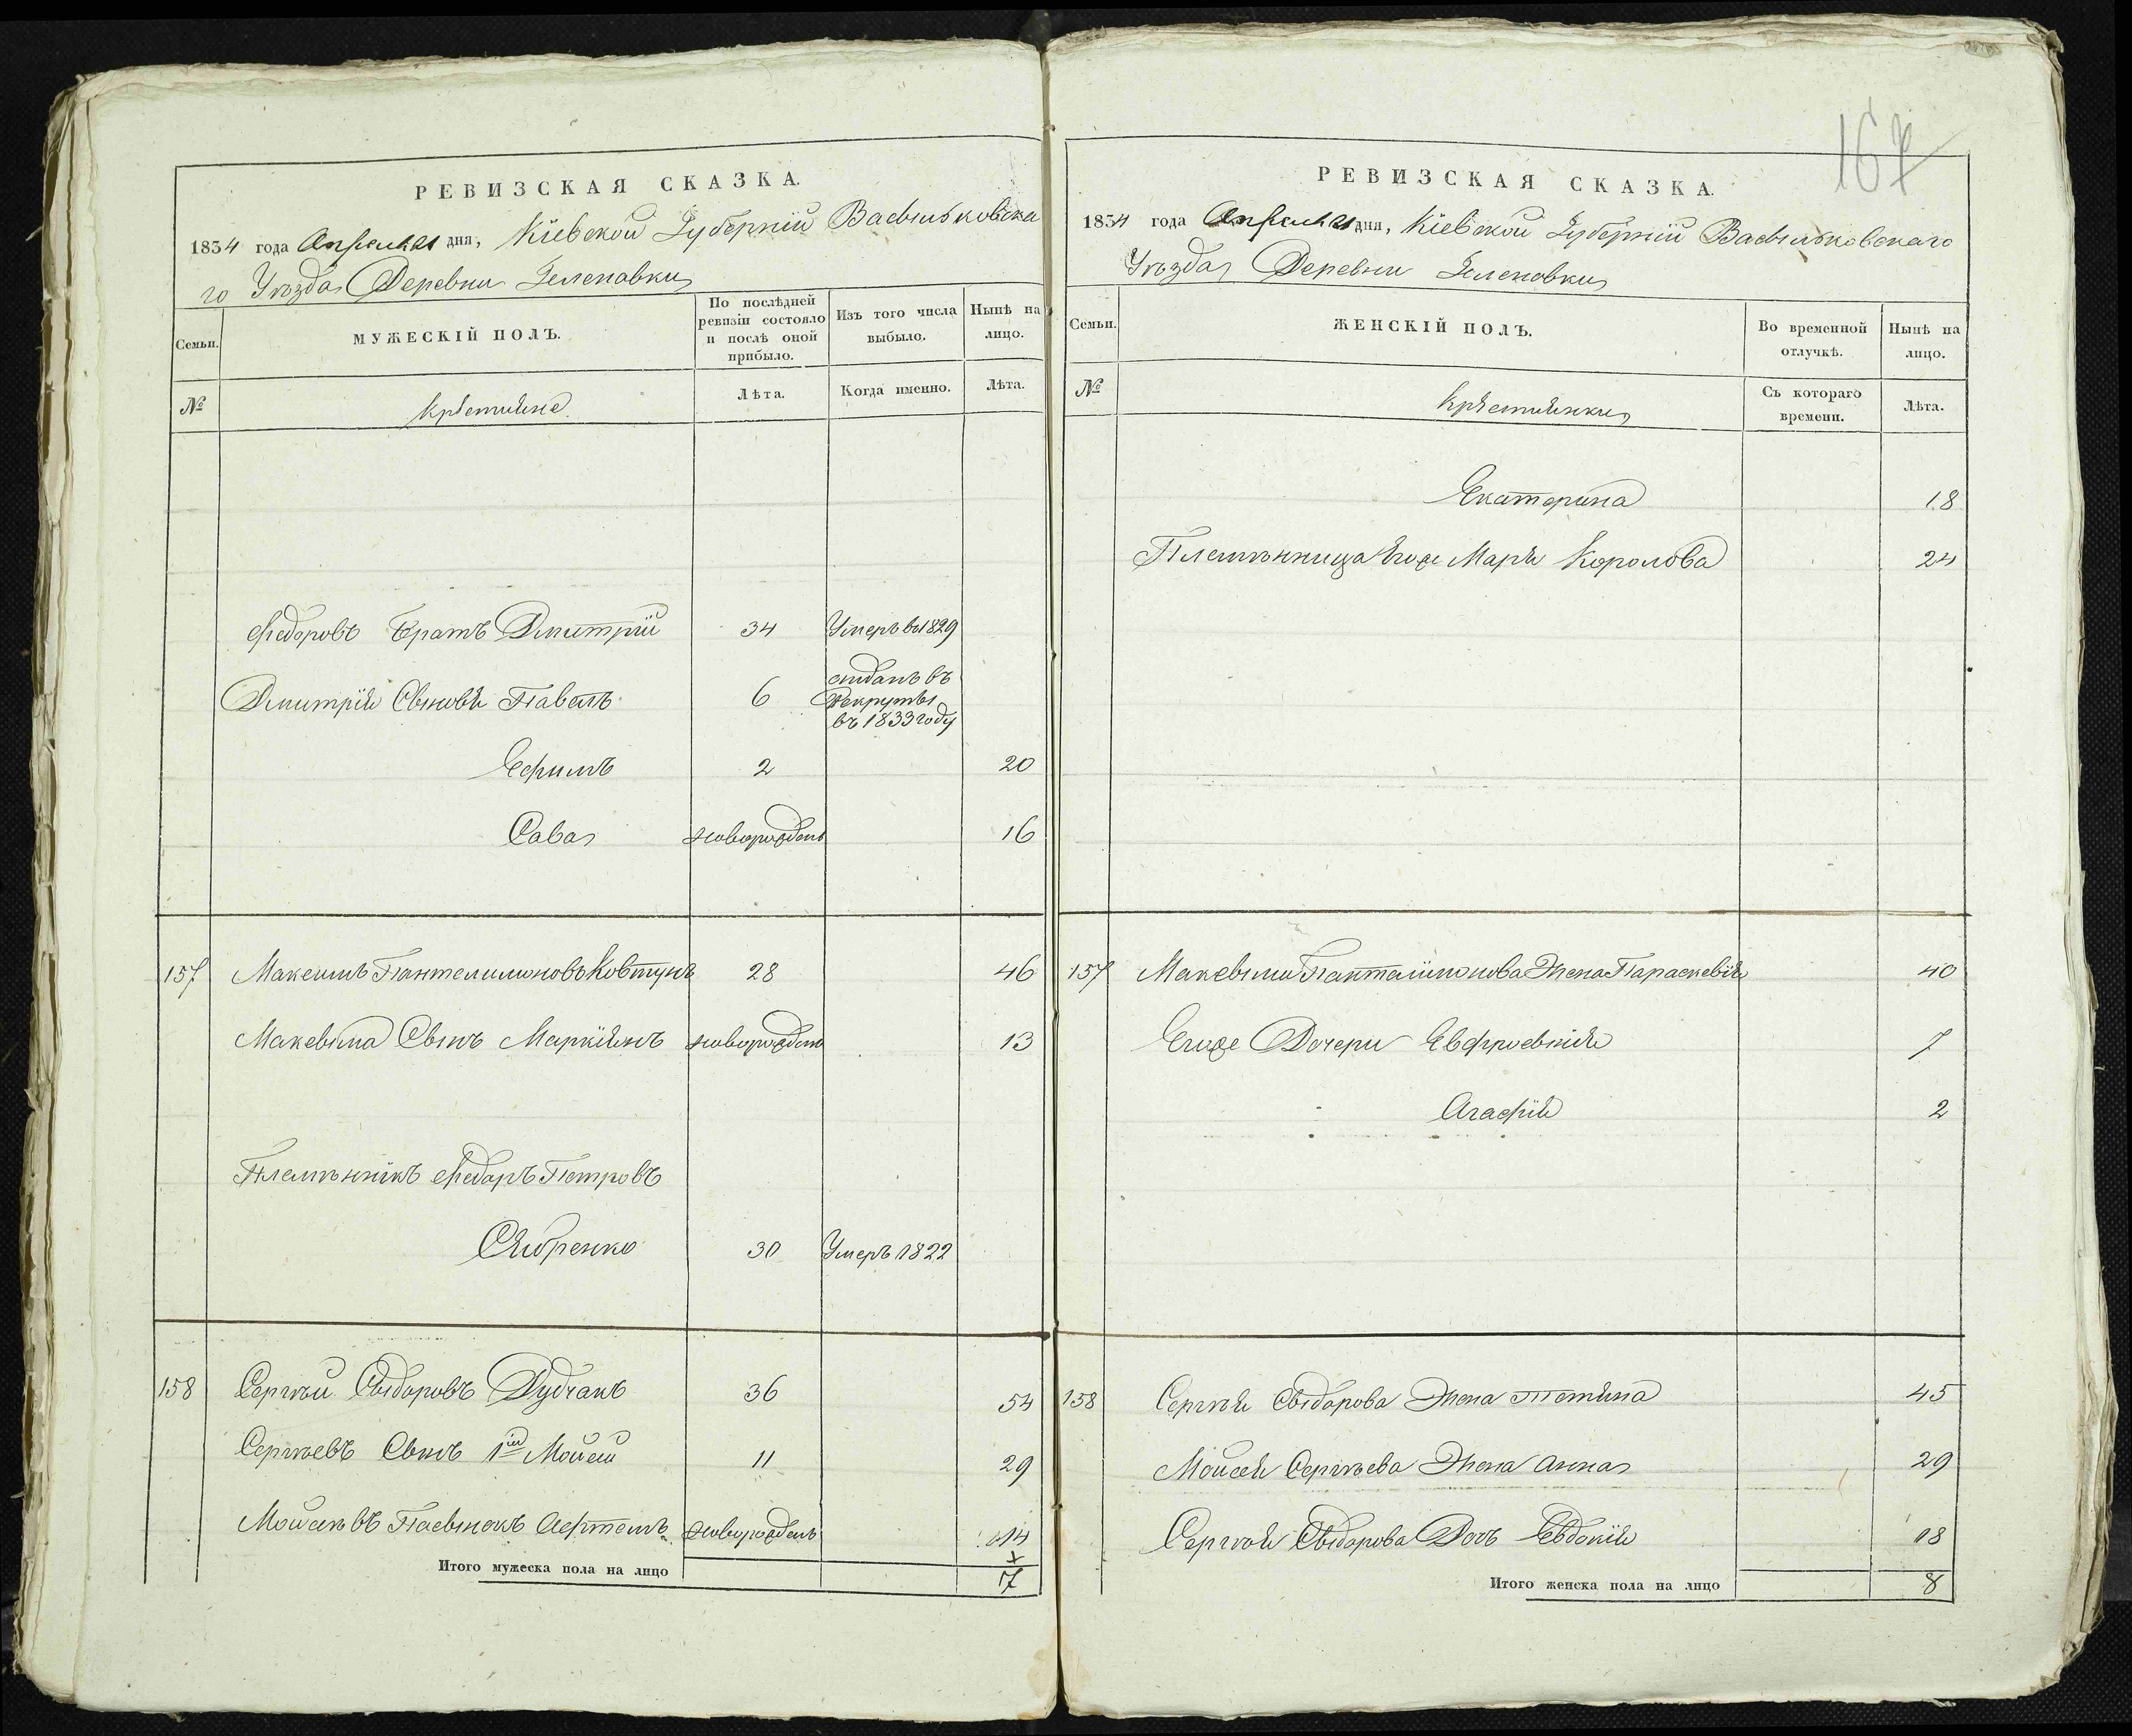 РЕВИЗСКАЯ СКАЗКА.
1834 года Апреля 21 дня, Кіевской Губерніи Васыльковска
го Уѣзда Деревни Зеленовки
Семьи.
МУЖЕСКІЙ ПОЛЪ.
По послѣдней
ревизіи состояло
и послѣ оной
прибыло.
Изъ того числа
выбыло.
Нынѣ на
лицо.
№
Крѣстияне
Лѣта.
Когда именно.
Лѣта.
Федоровъ Братъ Дмитрій 34 Умеръ въ 1829
Дмитрія Сыновя Павелъ 6 отданъ въ
Рекруты
въ 1833 году
Ефимъ 2 20
Сава новорожденъ 16
157 Максимъ Пантелимоновъ Ковтунъ 28 46
Максыма Сынъ Маркіянъ новорожденъ 13
Племѣнникъ Федоръ Петровъ
30 Умеръ 1822
158 Сергѣй Сыдоровъ Дудчакъ 36 54
Сергѣевъ Сынъ 1ій Мойсей 11 29
Мойсеевъ Пасынокъ Артемъ новорожденъ 14
Итого мужеска пола на лицо 7
167
РЕВИЗСКАЯ СКАЗКА.
1834 года Апреля 21 дня, Кіевской Губерніи Васыльковскаго
Уѣзда Деревни Зеленовки
Семьи.
ЖЕНСКІЙ ПОЛЪ.
Во временной
отлучкѣ.
Нынѣ на
лицо.
№
Крѣстиянки
Съ котораго
времени.
Лѣта.
Екатерина 18
Племѣнница Егоже Марія Королова 24
157 Максыма Панталимонова Жена Параскевія 40
Егоже Дочери Евфросвнія 7
Агафія 2
158 Сергѣя Сыдорова Жена Тетяна 45
Мойсея Сергѣева Жена Анна 29
Сергѣя Сыдорова Дочъ Евдокія 18
Итого женска пола на лицо 8